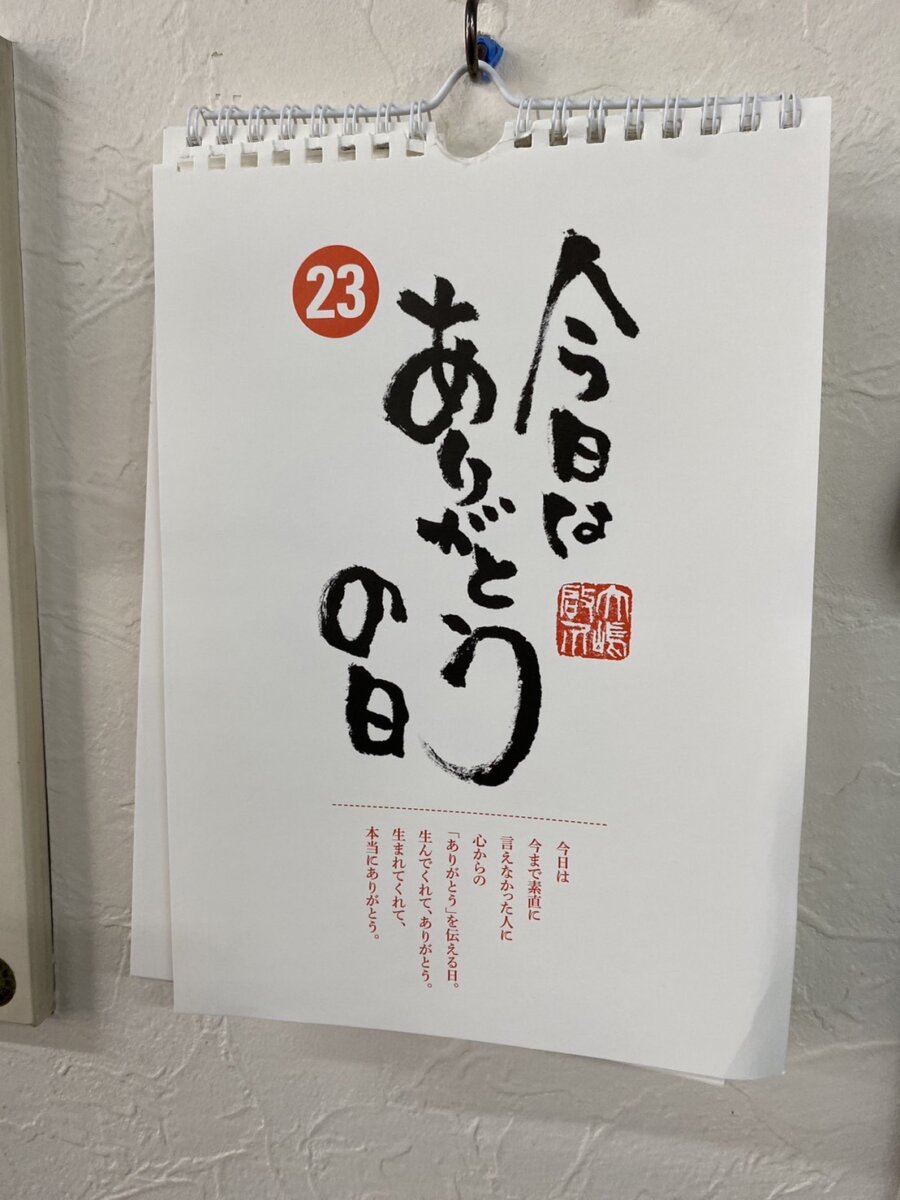 23
今日は
ありがとう
の日
大嶋
啓介
今日は
今まで素直に
言えなかった人に
心からの
「ありがとう」を伝える日。
生んでくれて、ありがとう。
生まれてくれて、
本当にありがとう。